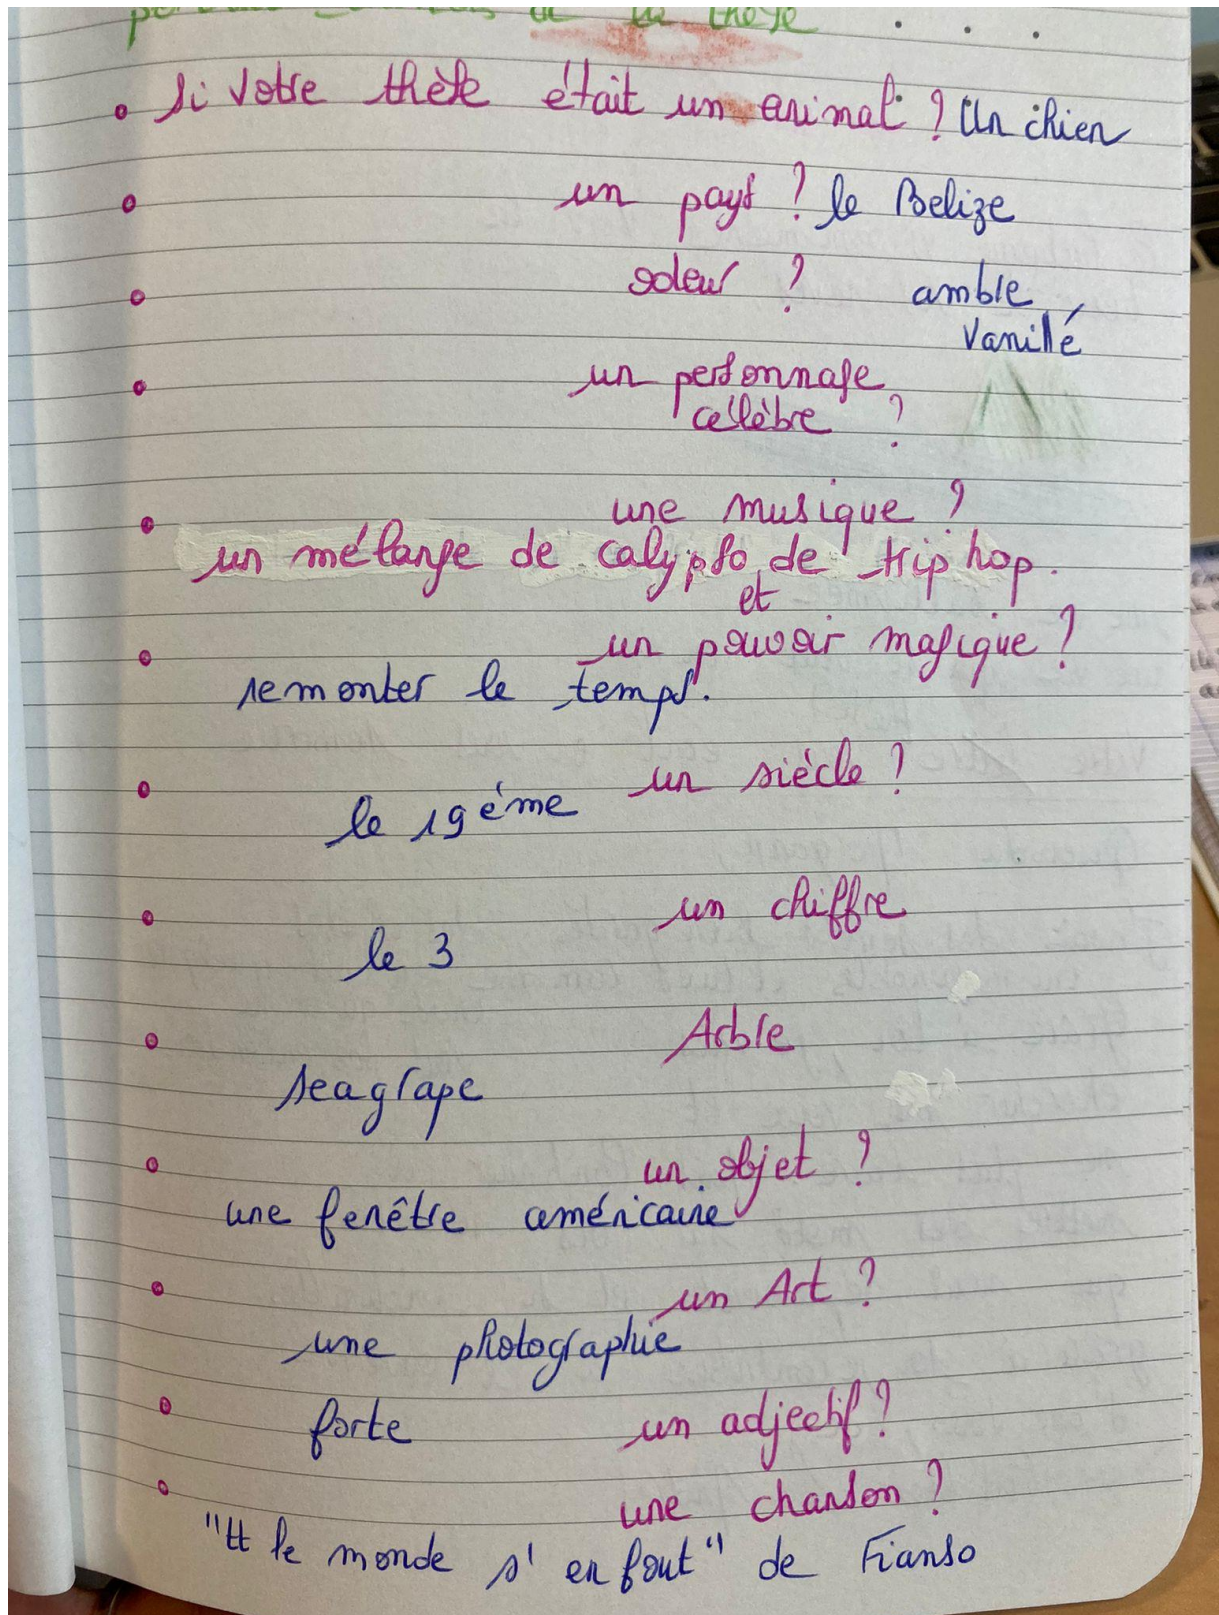 de la thèse . . .
Si votre thèse était un animal ? Un chien
un pays ? le Belize
odeur ? ambre
vanillé
un personnage
célèbre ?
une musique ?
un mélange de calypso de Hip hop.
et
un pouvoir magique ?
remonter le temps.
un siècle ?
le 19ème
un chiffre
le 3
Arbre
seagrape
un objet ?
une fenêtre américaine
un Art ?
une photographie
forte un adjectif ?
une chanson ?
"tt le monde s'en fout" de Fianso